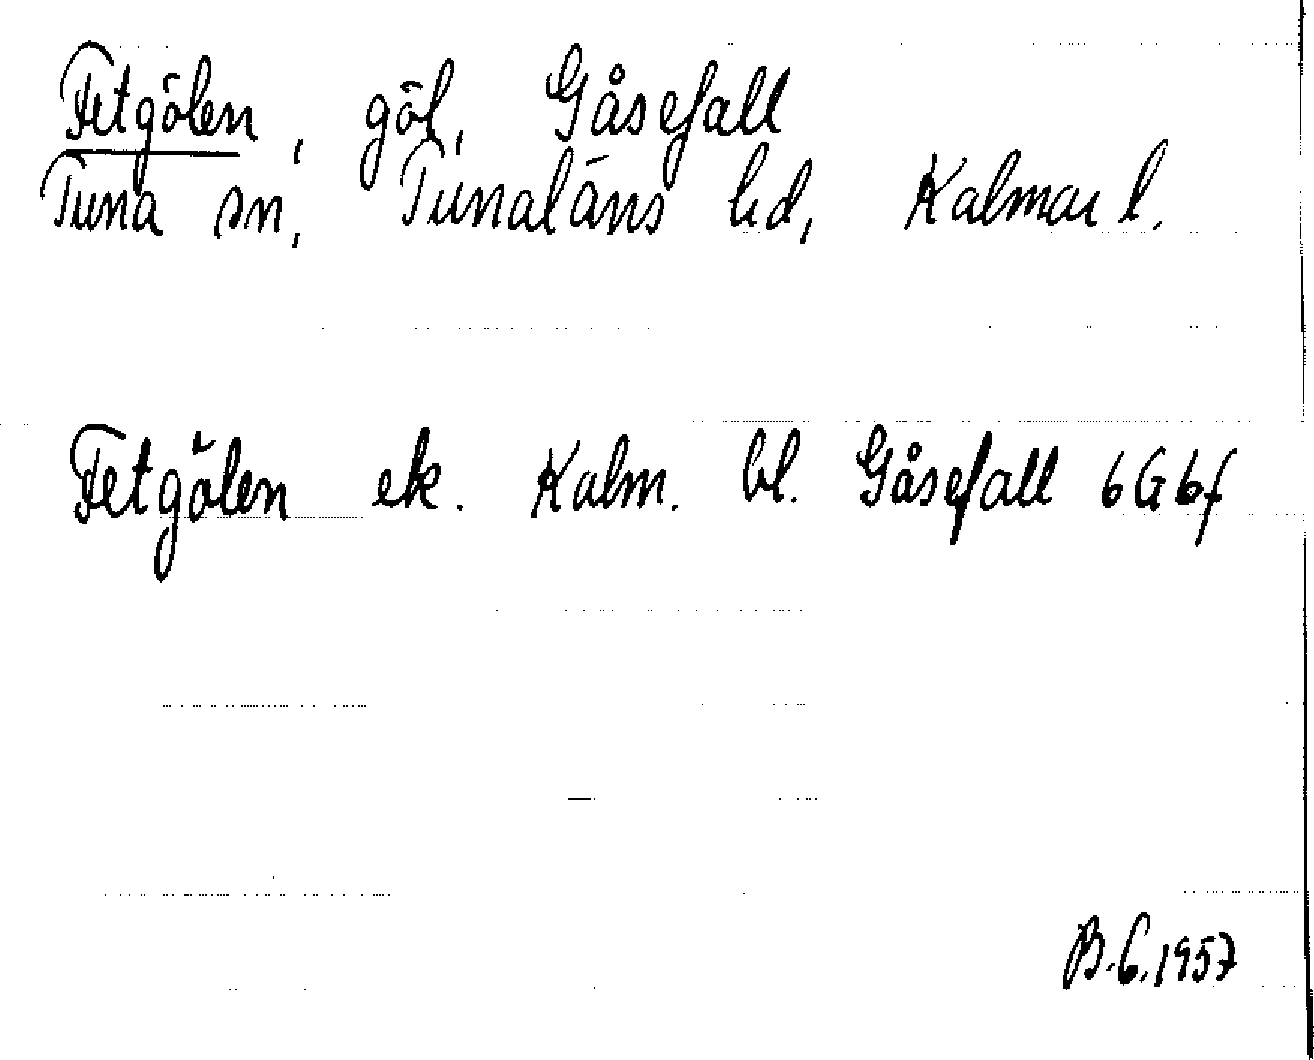 Fetgölen, göl, Gåsefall
Tuna sn, Tunaläns hd, Kalmar l.
Fetgölen ek. Kalm. bl. Gåsefall 6G6f
B.G.1957